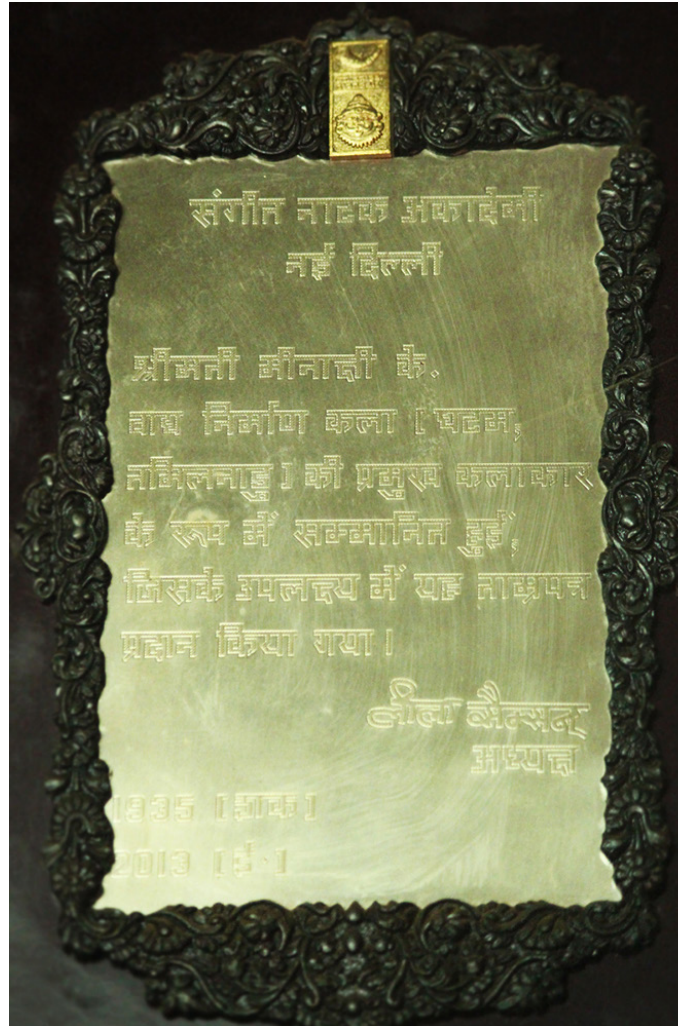 संगीत नाटक अकादेमी
नई दिल्ली
श्रीमती मीनाक्षी के.
वाद्य निर्माण कला [ घटम,
तमिलनाडु ] की प्रमुख कलाकार
के रूप में सम्मानित हुईं,
जिसके उपलक्ष्य में यह ताम्रपत्र
प्रदान किया गया।
लीला सैमसन
अध्यक्ष
1935 [ शक ]
2013 [ ई. ]